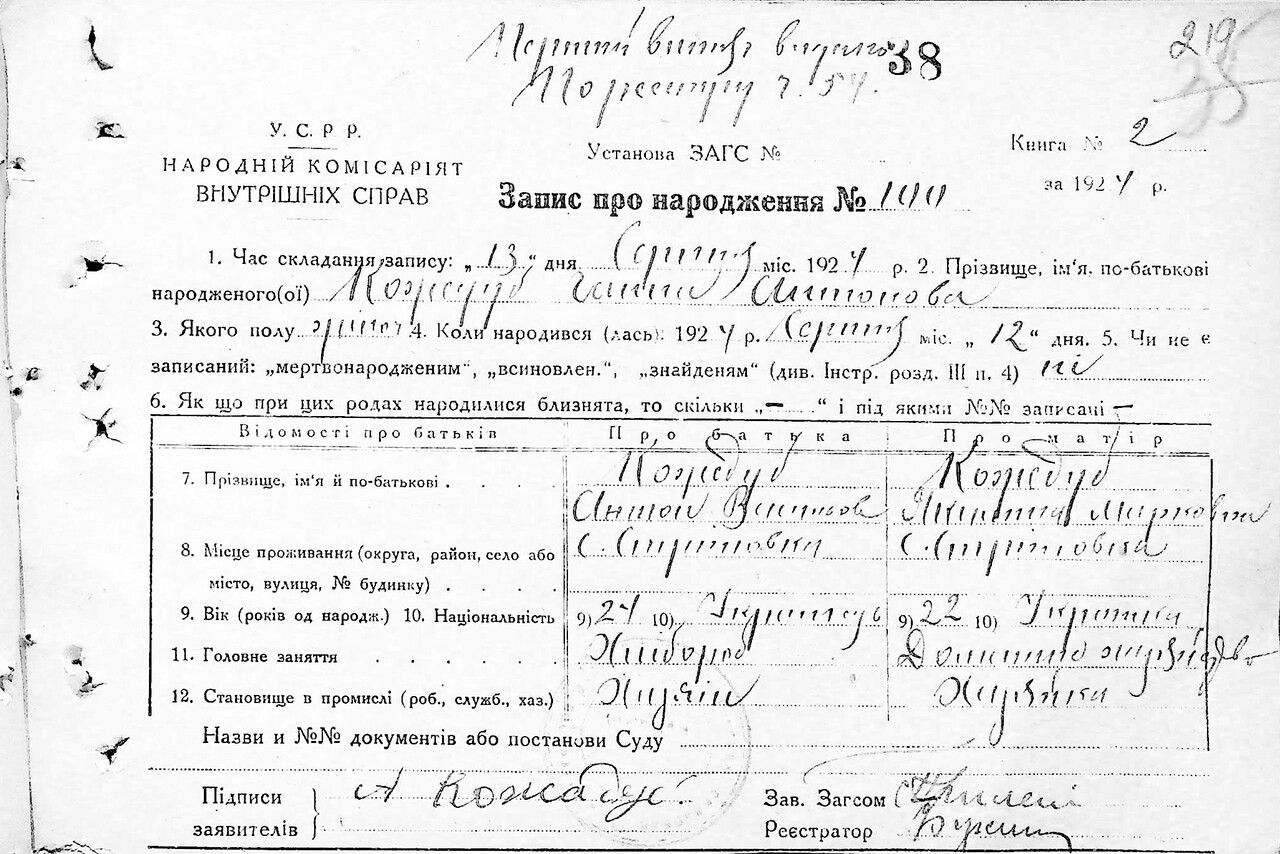 219
38
По реєстру ч. 54.
У. С. Р. Р.
НАРОДНІЙ КОМІСАРІЯТ
ВНУТРІШНІХ СПРАВ
Установа ЗАГС №
Книга № 2
за 1924 р.
Запис про народження №
1. Час складання запису: „ 13 " дня Серпня міс. 1924 р. 2. Прізвище, ім'я, по-батькові
народженого(ої) Кожедуб Ганна Антонова
3. Якого полу жіноч 4. Коли народився (лась): 1924 р. Серпня міс. „ 12 " дня. 5. Чи не є
записаний: „мертвонародженим", „всиновлен.", „знайденям" (див. Інстр. розд. III п. 4) ні
6. Як що при цих родах народилися близнята, то скільки „ — " і під якими №№ записані —
Відомості про батьків Про батька Про матір
7. Прізвище, ім'я й по-батькові . . . . Кожедуб Кожедуб
Антон Марковна
8. Місце проживання (округа, район, село або с. с.
місто, вулиця, № будинку) . . . .
9. Вік (років од народж.) 10. Національність 9) 24 10) Українець 9) 22 10) Українка
11. Головне заняття . . . . . . Хлібороб
12. Становище в промислі (роб., служб., хаз.) Хазяїн Хазяйка
Назви и №№ документів або постанови Суду
Підписи
заявителів
А Кожадуб
Зав. Загсом
Реєстратор